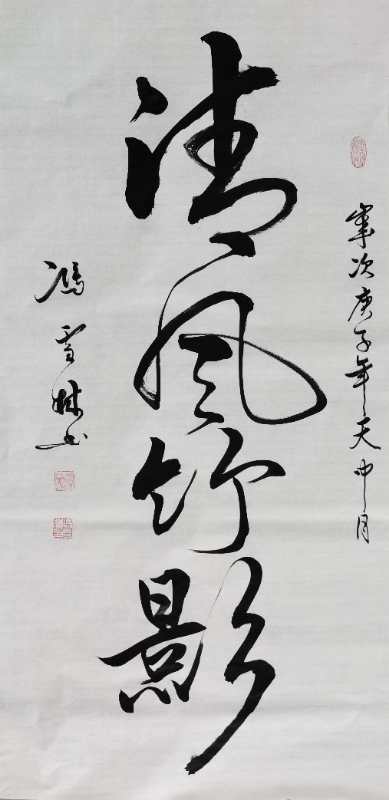 岁次庚子年天中月
清风竹影
冯雪林书